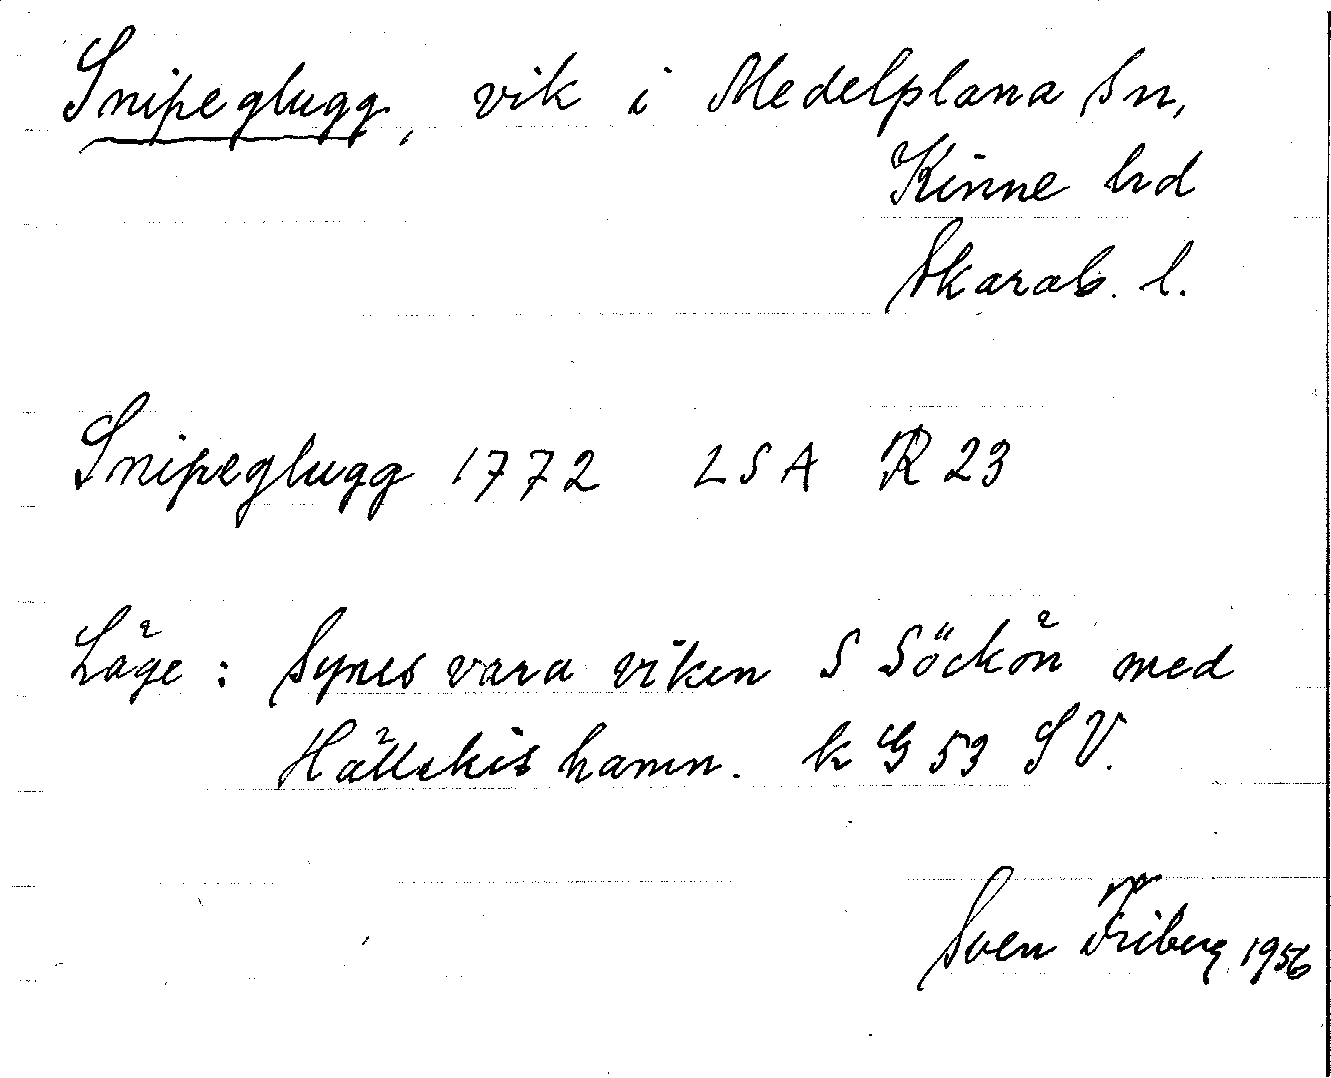 Snipeglugg, vik i Medelplana Sn,
Kinne hd
Skarab. l.
Snipeglugg 1772 LSA R 23
Läge: Synes vara viken S Söckön med
Hällekis hamn. k G 53 SV.
Sven Friberg 1956